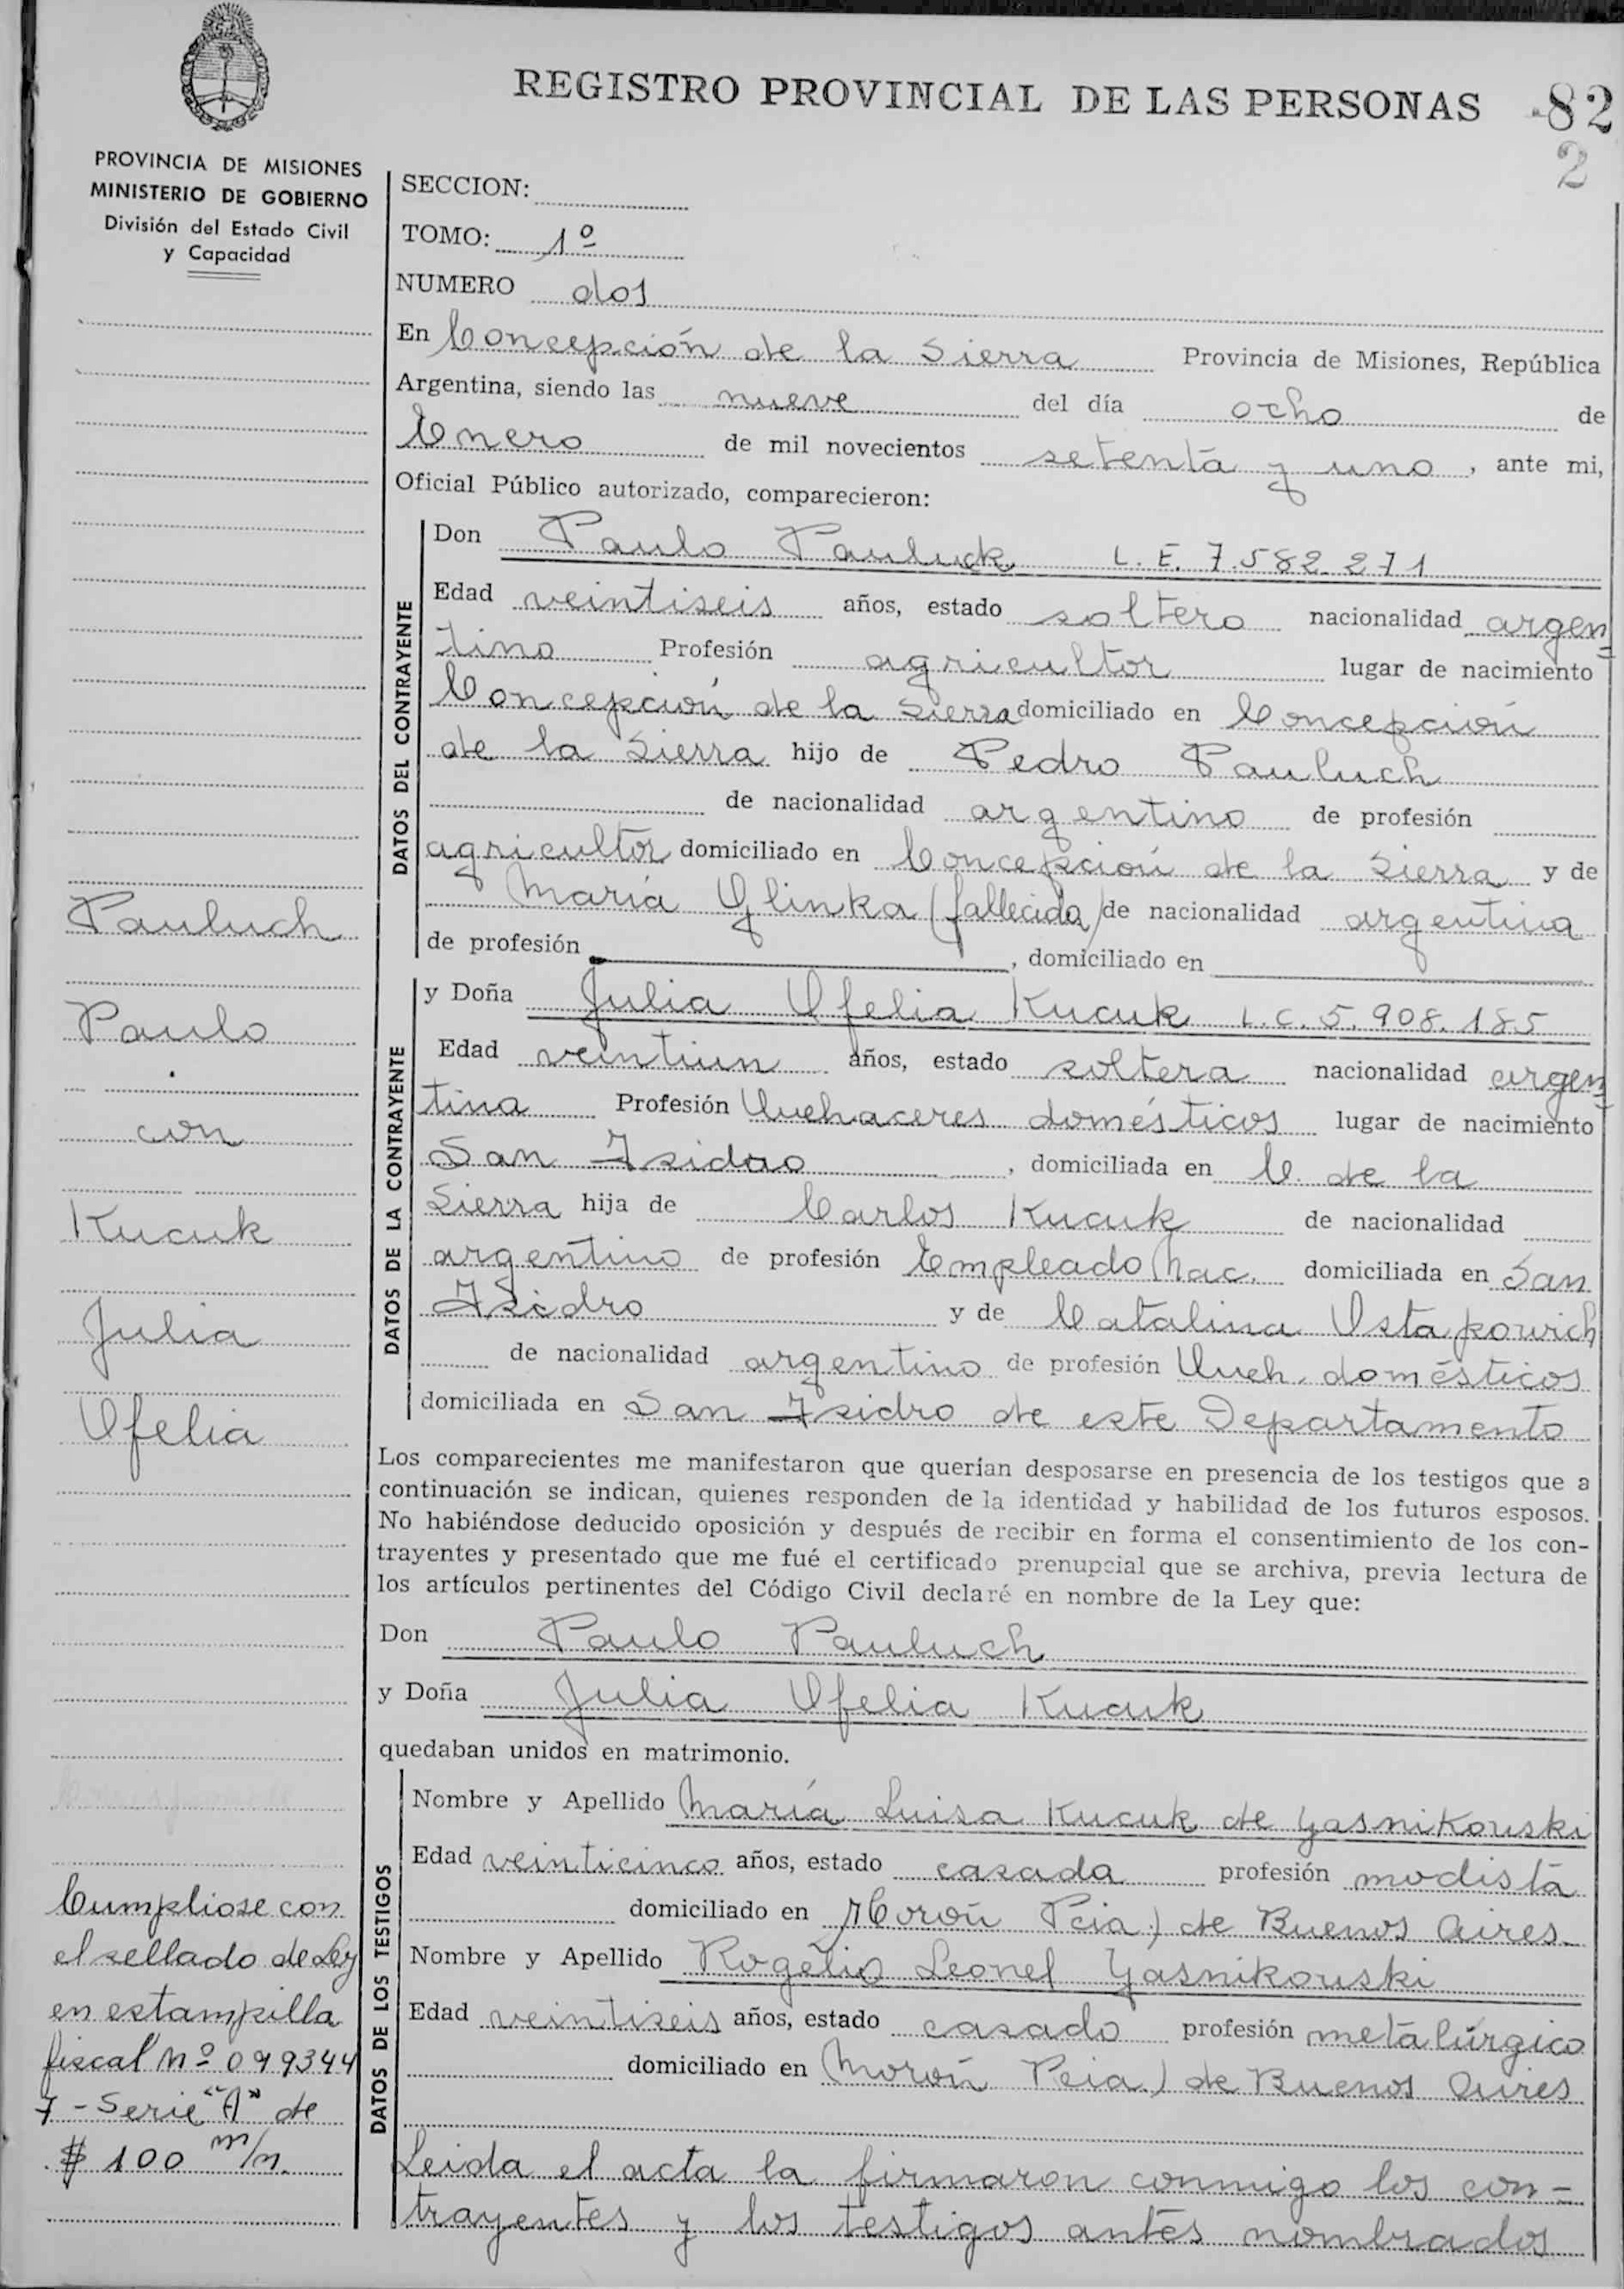 REGISTRO PROVINCIAL DE LAS PERSONAS 82
2
PROVINCIA DE MISIONES
MINISTERIO DE GOBIERNO
División del Estado Civil
y Capacidad
SECCION:
TOMO: 1º
NUMERO dos
En Concepción de la Sierra Provincia de Misiones, República
Argentina, siendo las nueve del día ocho de
Enero de mil novecientos setenta y uno, ante mi,
Oficial Público autorizado, comparecieron:
DATOS DEL CONTRAYENTE
Don Paulo Pauluck L. E. 7.582.271
Edad veintiseis años, estado soltero nacionalidad argen
tino Profesión agricultor lugar de nacimiento
Concepción de la Sierra domiciliado en Concepción
de la Sierra hijo de Pedro Pauluch
de nacionalidad argentino de profesión
agricultor domiciliado en Concepción de la Sierra y de
María Glinka (fallecida) de nacionalidad argentina
de profesión , domiciliado en
DATOS DE LA CONTRAYENTE
y Doña Julia Ofelia Kucuk L.C. 5.908.185
Edad veintiun años, estado soltera nacionalidad argen
tina Profesión Quehaceres domésticos lugar de nacimiento
San Isidro , domiciliada en C. de la
Sierra hija de Carlos Kucuk de nacionalidad
argentino de profesión Empleado Nac. domiciliada en San
Isidro y de Catalina Ostapowich
de nacionalidad argentino de profesión Queh. domésticos
domiciliada en San Isidro de este Departamento
Los comparecientes me manifestaron que querían desposarse en presencia de los testigos que a
continuación se indican, quienes responden de la identidad y habilidad de los futuros esposos.
No habiéndose deducido oposición y después de recibir en forma el consentimiento de los con-
trayentes y presentado que me fué el certificado prenupcial que se archiva, previa lectura de
los artículos pertinentes del Código Civil declaré en nombre de la Ley que:
Don Paulo Pauluch
y Doña Julia Ofelia Kucuk
quedaban unidos en matrimonio.
DATOS DE LOS TESTIGOS
Nombre y Apellido María Luisa Kucuk de Yasnikouski
Edad veinticinco años, estado casada profesión modista
domiciliado en Morón Pcia) de Buenos Aires
Nombre y Apellido Rogelio Leonel Yasnikouski
Edad veintiseis años, estado casado profesión metalúrgico
domiciliado en Morón Pcia.) de Buenos Aires
Leida el acta la firmaron conmigo los con-
trayentes y los testigos antes nombrados
Pauluch
Paulo
con
Kucuk
Julia
Ofelia
Cumpliose con
el sellado de Ley
en estampilla
fiscal Nº 099344
7 - Serie "A" de
$ 100 m/n.